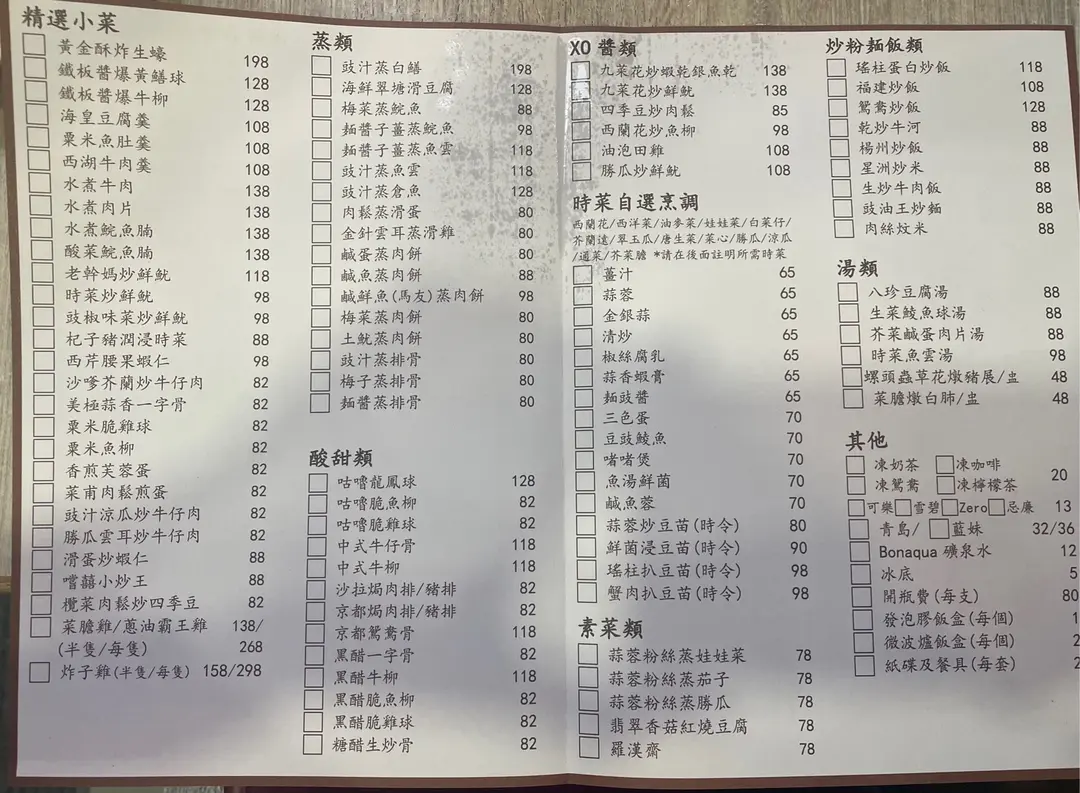 精選小菜
黃金酥炸生蠔 198
鐵板醬爆黃鱔球 128
鐵板醬爆牛柳 128
海皇豆腐羹 108
粟米魚肚羹 108
西湖牛肉羹 108
水煮牛肉 138
水煮肉片 138
水煮鯇魚腩 138
酸菜鯇魚腩 138
老幹媽炒鮮魷 118
時菜炒鮮魷 98
豉椒味菜炒鮮魷 98
杞子豬潤浸時菜 88
西芹腰果蝦仁 98
沙嗲芥蘭炒牛仔肉 82
美極蒜香一字骨 82
粟米脆雞球 82
粟米魚柳 82
香煎芙蓉蛋 82
菜甫肉鬆煎蛋 82
豉汁涼瓜炒牛仔肉 82
勝瓜雲耳炒牛仔肉 82
滑蛋炒蝦仁 88
嚐囍小炒王 88
欖菜肉鬆炒四季豆 82
菜膽雞/蔥油霸王雞 138/
(半隻/每隻) 268
炸子雞(半隻/每隻) 158/298
蒸類
豉汁蒸白鱔 198
海鮮翠塘滑豆腐 128
梅菜蒸鯇魚 88
麵醬子薑蒸鯇魚 98
麵醬子薑蒸魚雲 118
豉汁蒸魚雲 118
豉汁蒸倉魚 128
肉鬆蒸滑蛋 80
金針雲耳蒸滑雞 80
鹹蛋蒸肉餅 80
鹹魚蒸肉餅 88
鹹鮮魚(馬友)蒸肉餅 98
梅菜蒸肉餅 80
土魷蒸肉餅 80
豉汁蒸排骨 80
梅子蒸排骨 80
麵醬蒸排骨 80
酸甜類
咕嚕龍鳳球 128
咕嚕脆魚柳 82
咕嚕脆雞球 82
中式牛仔骨 118
中式牛柳 118
沙拉焗肉排/豬排 82
京都焗肉排/豬排 82
京都鴛鴦骨 118
黑醋一字骨 82
黑醋牛柳 118
黑醋脆魚柳 82
黑醋脆雞球 82
糖醋生炒骨 82
XO 醬類
九菜花炒蝦乾銀魚乾 138
九菜花炒鮮魷 138
四季豆炒肉鬆 85
西蘭花炒魚柳 98
油泡田雞 108
勝瓜炒鮮魷 108
時菜自選烹調
西蘭花/西洋菜/油麥菜/娃娃菜/白菜仔/
芥蘭遠/翠玉瓜/唐生菜/菜心/勝瓜/涼瓜
/通菜/芥菜膽 *請在後面註明所需時菜
薑汁 65
蒜蓉 65
金銀蒜 65
清炒 65
椒絲腐乳 65
蒜香蝦膏 65
麵豉醬 65
三色蛋 70
豆豉鯪魚 70
啫啫煲 70
魚湯鮮菌 70
鹹魚蓉 70
蒜蓉炒豆苗(時令) 80
鮮菌浸豆苗(時令) 90
瑤柱扒豆苗(時令) 98
蟹肉扒豆苗(時令) 98
素菜類
蒜蓉粉絲蒸娃娃菜 78
蒜蓉粉絲蒸茄子 78
蒜蓉粉絲蒸勝瓜 78
翡翠香菇紅燒豆腐 78
羅漢齋 78
炒粉麵飯類
瑤柱蛋白炒飯 118
福建炒飯 108
鴛鴦炒飯 128
乾炒牛河 88
楊州炒飯 88
星洲炒米 88
生炒牛肉飯 88
豉油王炒麵 88
肉絲炆米 88
湯類
八珍豆腐湯 88
生菜鯪魚球湯 88
芥菜鹹蛋肉片湯 88
時菜魚雲湯 98
螺頭蟲草花燉豬展/盅 48
菜膽燉白肺/盅 48
其他
凍奶茶 凍咖啡
凍鴛鴦 凍檸檬茶 20
可樂 雪碧 Zero 忌廉 13
青島/ 藍妹 32/36
Bonaqua 礦泉水 12
冰底 5
開瓶費(每支) 80
發泡膠飯盒(每個) 1
微波爐飯盒(每個) 2
紙碟及餐具(每套) 2